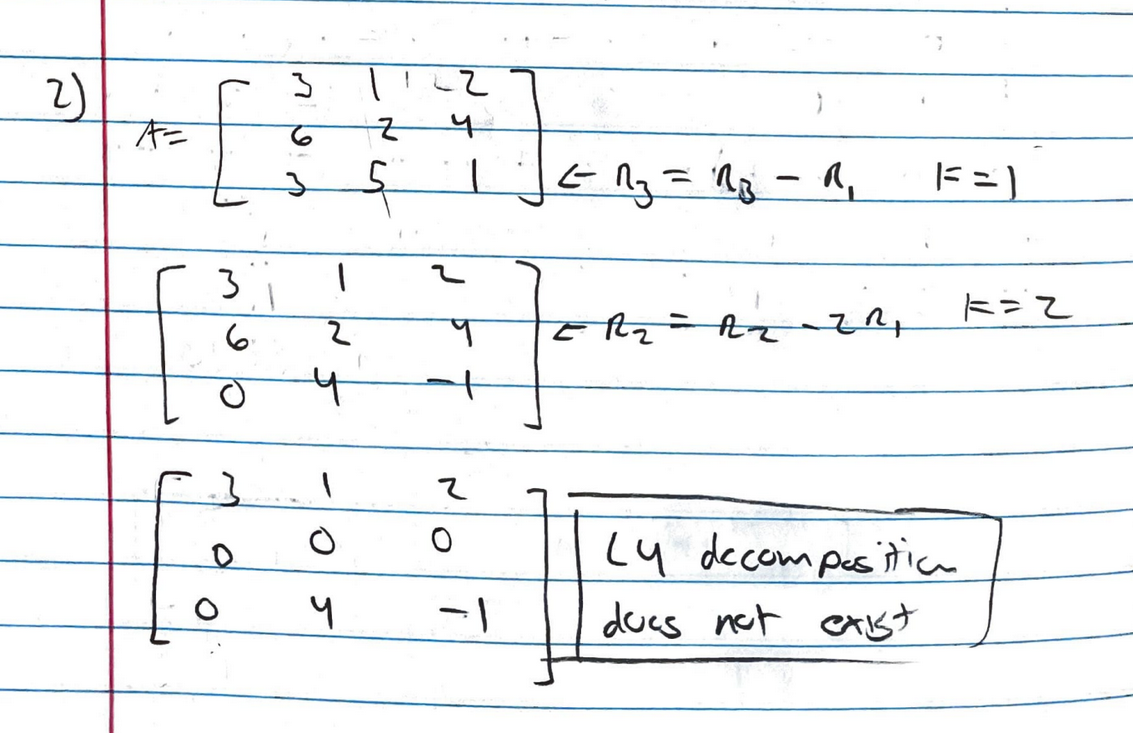 2)
A = [ 3 1 2
6 2 4
3 5 1 ] ← R₃ = R₃ - R₁ k = 1
[ 3 1 2
6 2 4
0 4 -1 ] ← R₂ = R₂ - 2R₁ k = 2
[ 3 1 2
0 0 0
0 4 -1 ]
LU decomposition
does not exist